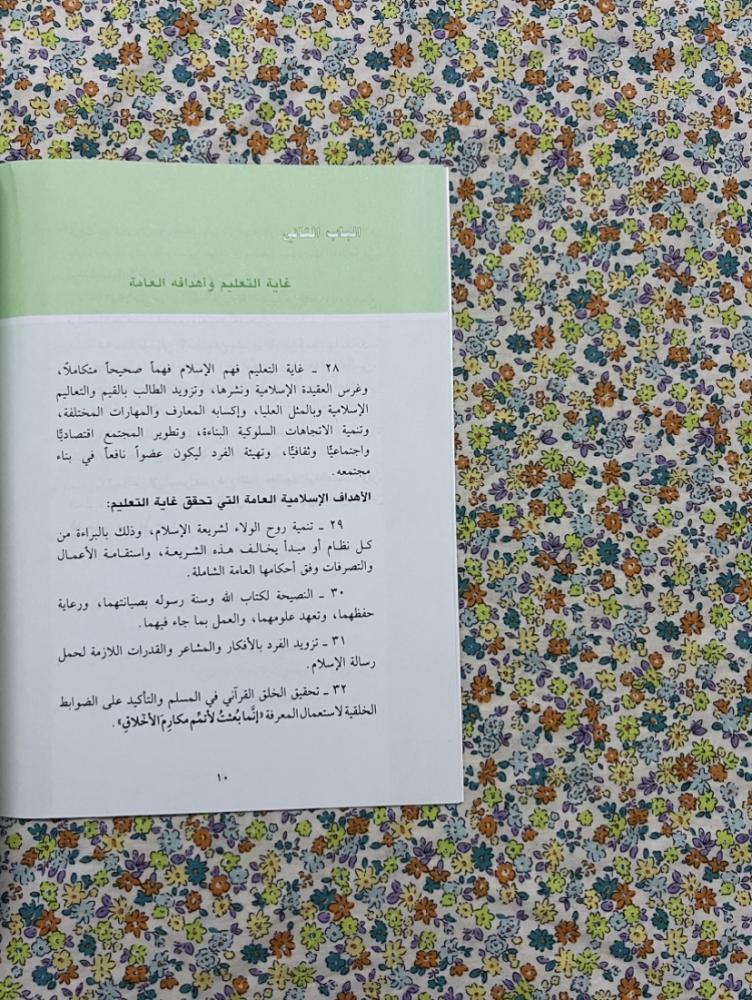 الباب الثاني
غاية التعليم وأهدافه العامة
٢٨ ـ غاية التعليم فهم الإسلام فهماً صحيحاً متكاملًا،
وغرس العقيدة الإسلامية ونشرها، وتزويد الطالب بالقيم والتعاليم
الإسلامية وبالمثل العليا، وإكسابه المعارف والمهارات المختلفة،
وتنمية الاتجاهات السلوكية البناءة، وتطوير المجتمع اقتصاديًّا
واجتماعيًّا وثقافيًّا، وتهيئة الفرد ليكون عضواً نافعاً في بناء
مجتمعه.
الأهداف الإسلامية العامة التي تحقق غاية التعليم:
٢٩ ـ تنمية روح الولاء لشريعة الإسلام، وذلك بالبراءة من
كل نظام أو مبدأ يخالف هذه الشريعة، واستقامة الأعمال
والتصرفات وفق أحكامها العامة الشاملة.
٣٠ ـ النصيحة لكتاب الله وسنة رسوله بصيانتهما، ورعاية
حفظهما، وتعهد علومهما، والعمل بما جاء فيهما.
٣١ ـ تزويد الفرد بالأفكار والمشاعر والقدرات اللازمة لحمل
رسالة الإسلام.
٣٢ ـ تحقيق الخلق القرآني في المسلم والتأكيد على الضوابط
الخلقية لاستعمال المعرفة «إنَّما بُعثْتُ لأتمِّم مكارِمَ الأخْلاقِ».
١٠